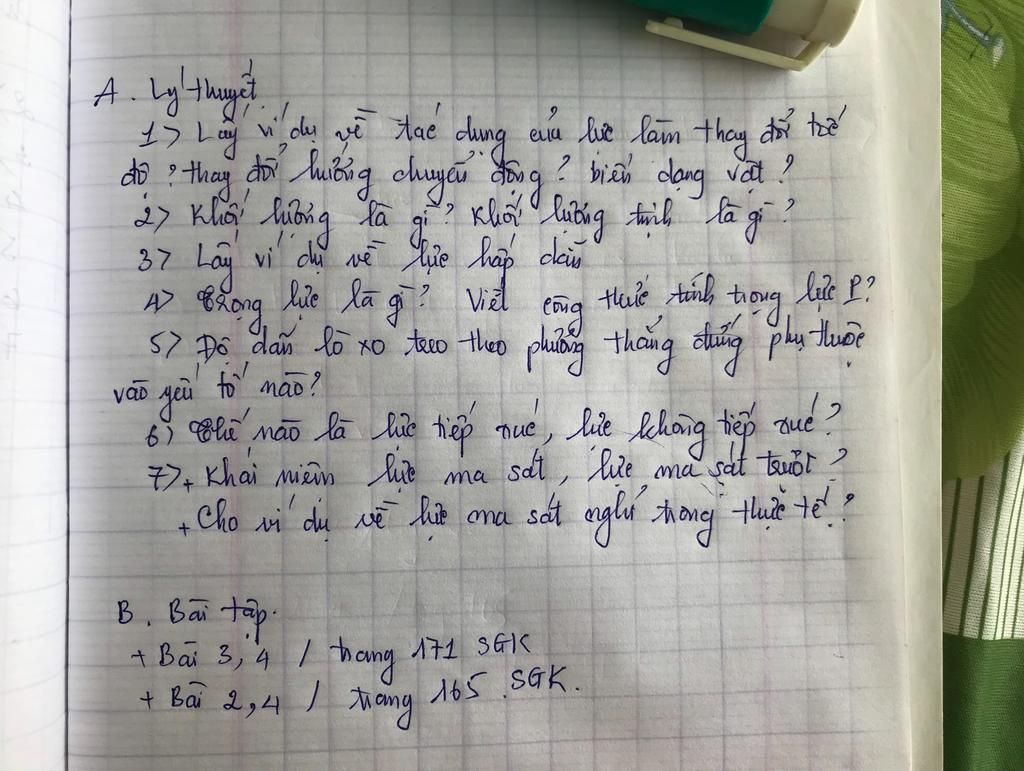 A. Lý thuyết
1> Lấy ví dụ về tác dụng của lực làm thay đổi tốc
độ? thay đổi hướng chuyển động? biến dạng vật?
2> Khối lượng là gì? Khối lượng tịnh là gì?
3> Lấy ví dụ về lực hấp dẫn
4> Trọng lực là gì? Viết công thức tính trọng lực P?
5> Độ dãn lò xo treo theo phương thẳng đứng phụ thuộc
vào yếu tố nào?
6> Thế nào là lực tiếp xúc, lực không tiếp xúc?
7> + Khái niệm lực ma sát, lực ma sát trượt?
+ Cho ví dụ về lực ma sát nghỉ trong thực tế?
B. Bài tập.
+ Bài 3, 4 / trang 171 SGK
+ Bài 2, 4 / trang 165 SGK.